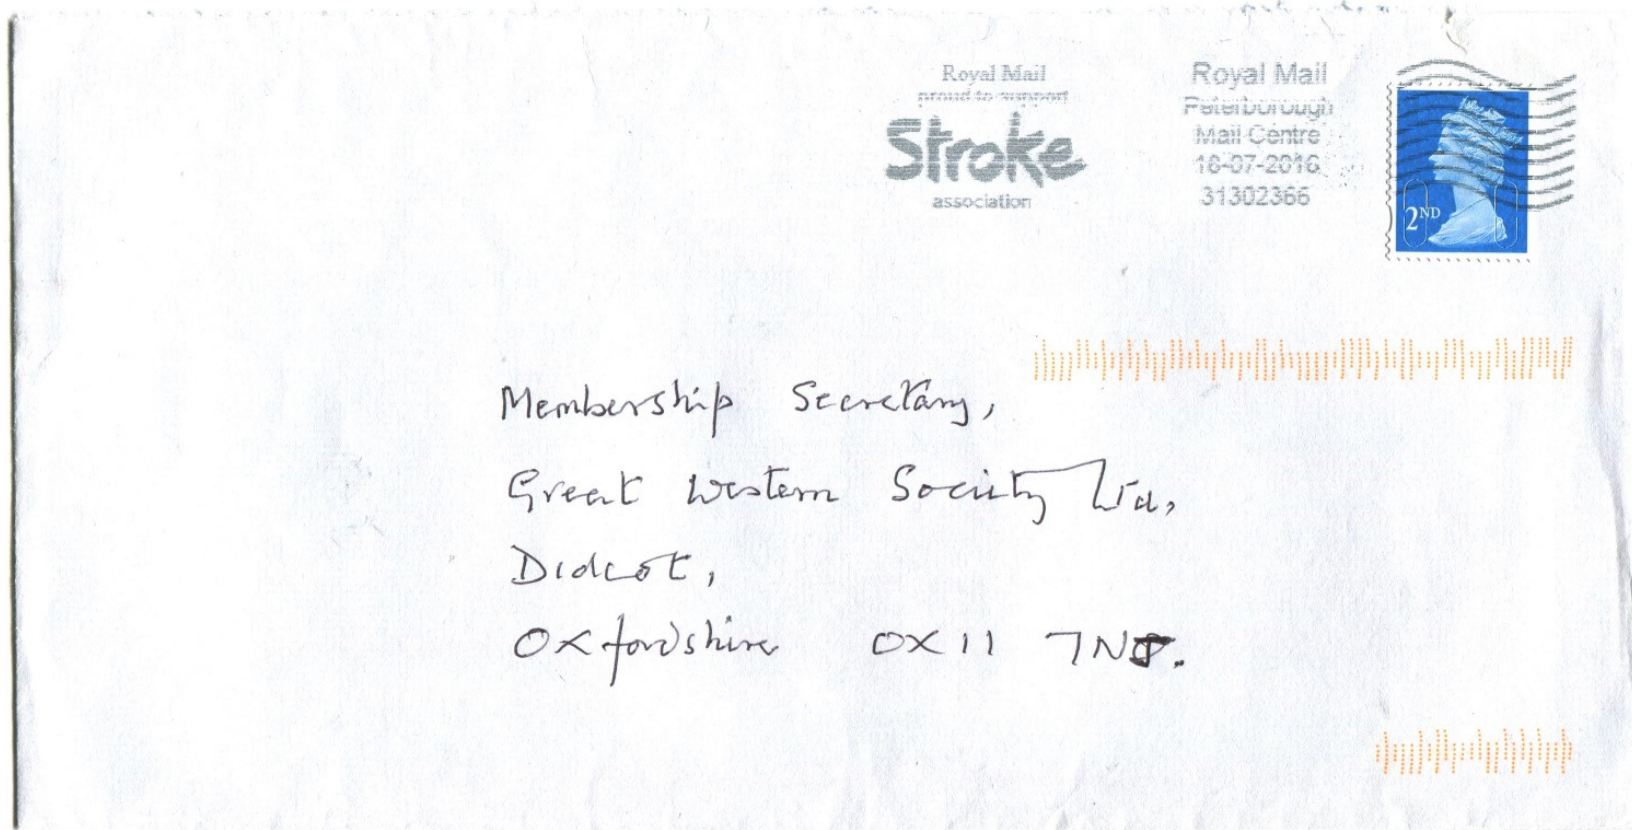 Royal Mail
proud to support
Stroke
association
Royal Mail
Peterborough
Mail Centre
18-07-2016
31302366
2ND
Membership Secretary,
Great Western Society Ltd,
Didcot,
Oxfordshire OX11 7NJ.